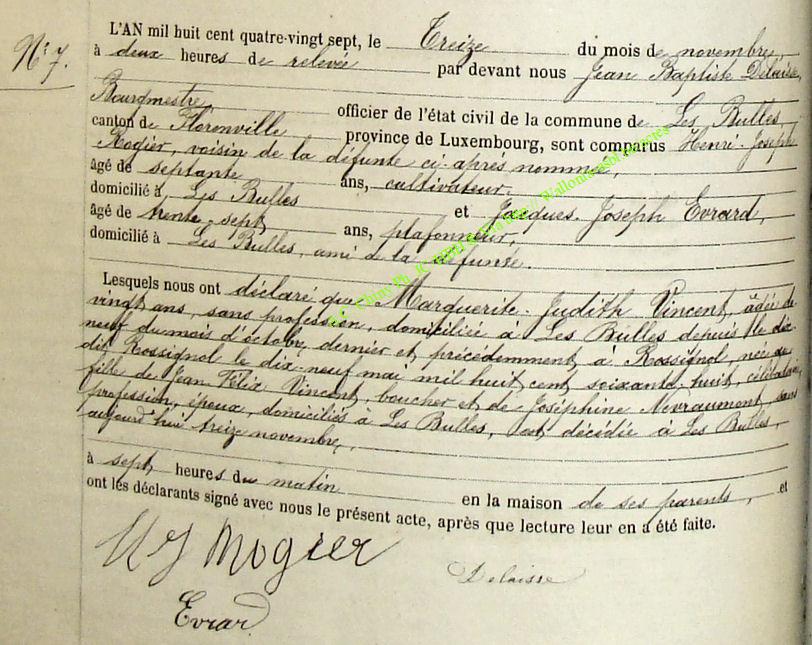 N° 7.
L'AN mil huit cent quatre-vingt sept, le Treize du mois de novembre,
à deux heures de relevée par devant nous Jean Baptiste Delaisse,
Bourgmestre officier de l'état civil de la commune de Les Bulles
canton de Florenville province de Luxembourg, sont comparus Henri-Joseph
Rogier, voisin de la défunte ci-après nommée,
âgé de septante ans, cultivateur,
domicilié à Les Bulles et Jacques-Joseph Evrard,
âgé de trente-sept ans, plafonneur,
domicilié à Les Bulles, ami de la défunte.
Lesquels nous ont déclaré que Marguerite-Judith Vincent, âgée de
vingt ans, sans profession, domiciliée à Les Bulles depuis le dix-
neuf du mois d'octobre dernier et précédemment à Rossignol, née au
dit Rossignol le dix-neuf mai mil huit cent soixante-huit, célibataire,
fille de Jean-Félix Vincent, boucher et de Joséphine Nevraumont, sans
profession, époux, domiciliés à Les Bulles, est décédée à Les Bulles,
aujourd'hui treize novembre,
à sept heures du matin en la maison de ses parents, et
ont les déclarants signé avec nous le présent acte, après que lecture leur en a été faite.
HJ Rogier
Delaisse
Evrard